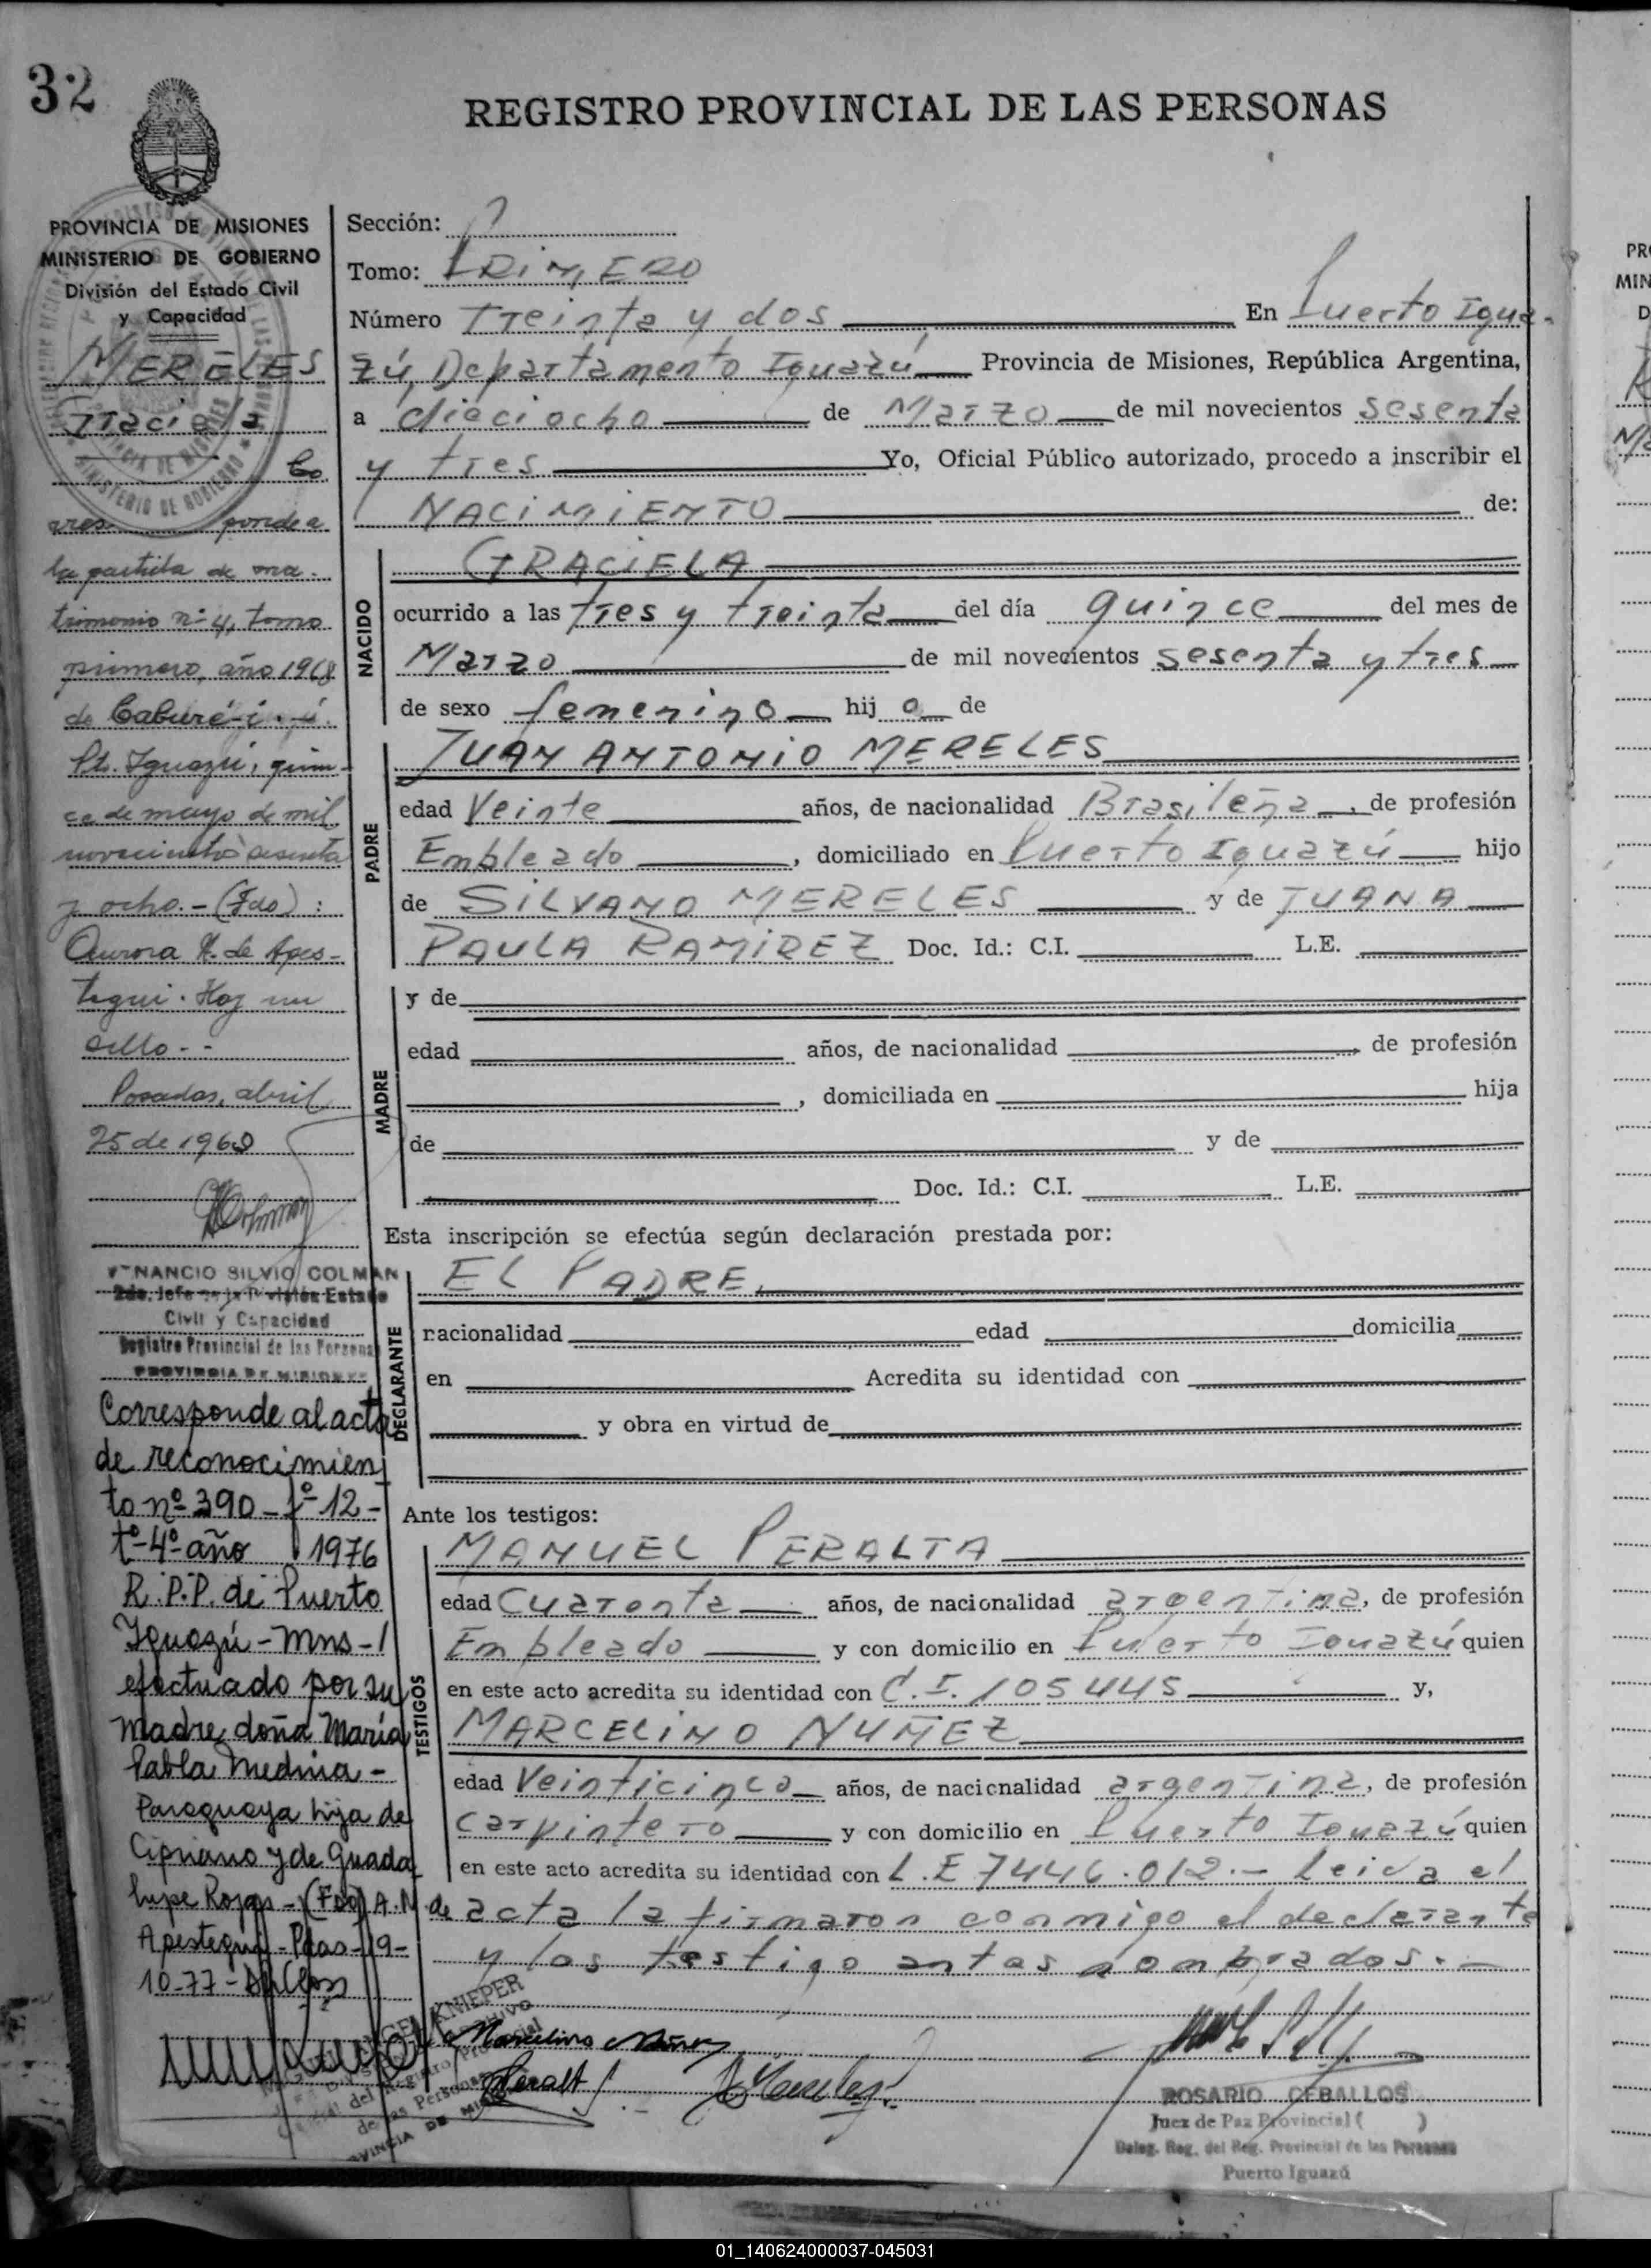 32
REGISTRO PROVINCIAL DE LAS PERSONAS
PROVINCIA DE MISIONES
MINISTERIO DE GOBIERNO
División del Estado Civil
y Capacidad
MERELES
Graciela
Co
rres ponde a
la partida de ma-
trimonio nº 4, tomo
primero, año 1968
de Caburé-í.-
Pto. Iguazú, quin-
ce de mayo de mil
novecientos sesenta
y ocho.- (Fdo):
Aurora N. de Apes-
tegui. Hay un
sello.-
Posadas, abril
25 de 1969
VENANCIO SILVIO COLMAN
2do. Jefe de la División Estado
Civil y Capacidad
Registro Provincial de las Personas
PROVINCIA DE MISIONES
Corresponde al acta
de reconocimien
to nº 390 - fº 12 -
tº 4º año 1976
R.P.P. de Puerto
Iguazú - Mns -
efectuado por su
madre doña María
Pabla Medina -
Paraguaya hija de
Cipriano y de Guada
lupe Rojas - (Fdo) A.N. de
Apestegui - Pdas - 19-
10-77-
Sección:
Tomo: PRIMERO
Número Treinta y dos En Puerto Igua-
zú, Departamento Iguazú, Provincia de Misiones, República Argentina,
a dieciocho de Marzo de mil novecientos sesenta
y tres Yo, Oficial Público autorizado, procedo a inscribir el
NACIMIENTO de:
NACIDO
GRACIELA
ocurrido a las tres y treinta del día quince del mes de
Marzo de mil novecientos sesenta y tres
de sexo femenino hij a de
PADRE
JUAN ANTONIO MERELES
edad Veinte años, de nacionalidad Brasileña, de profesión
Empleado, domiciliado en Puerto Iguazú hijo
de SILVANO MERELES y de JUANA
PAULA RAMIREZ Doc. Id.: C.I. L.E.
MADRE
y de
edad años, de nacionalidad de profesión
, domiciliada en hija
de y de
Doc. Id.: C.I. L.E.
Esta inscripción se efectúa según declaración prestada por:
DECLARANTE
EL PADRE.
nacionalidad edad domicilia
en Acredita su identidad con
y obra en virtud de
Ante los testigos:
TESTIGOS
MANUEL PERALTA
edad Cuarenta años, de nacionalidad argentina, de profesión
Empleado y con domicilio en Puerto Iguazú quien
en este acto acredita su identidad con C.I. 105445 y,
MARCELINO NUÑEZ
edad Veinticinco años, de nacionalidad argentina, de profesión
carpintero y con domicilio en Puerto Iguazú quien
en este acto acredita su identidad con L.E 7446.012.- Leida el
acta la firmaron conmigo el declarante
y los testigo antes nombrados.-
Marcelino Núñez
Peralt
KNIEPER
del Registro Provincial
de las Personas
PROVINCIA DE MIS
ROSARIO CEBALLOS
Juez de Paz Provincial ( )
Deleg. Reg. del Reg. Provincial de las Personas
Puerto Iguazú
01_140624000037-045031